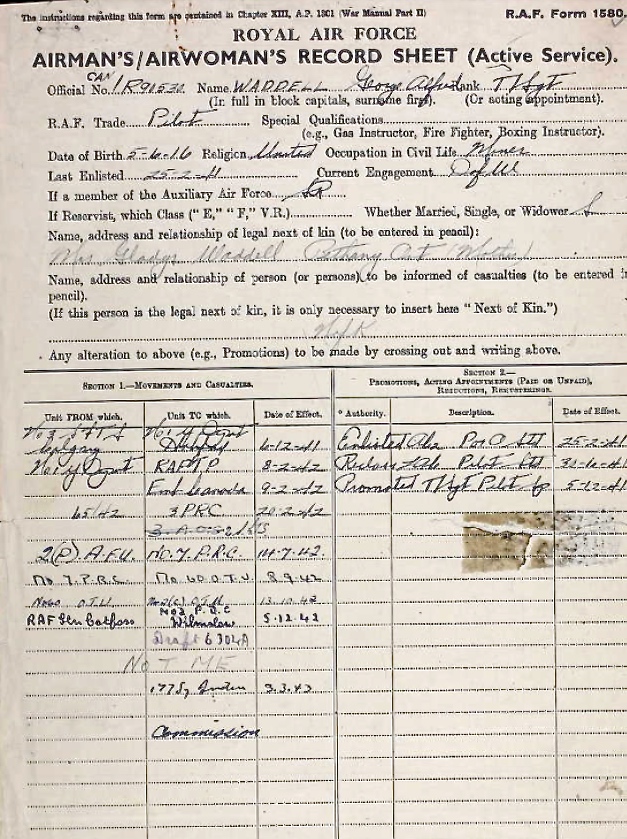 The instructions regarding this form are contained in Chapter XIII, A.P. 1301 (War Manual Part II)
R.A.F. Form 1580.
ROYAL AIR FORCE
AIRMAN'S/AIRWOMAN'S RECORD SHEET (Active Service).
CAN
Official No. R90530 Name WADDELL George Alfred Rank T/Sgt
(In full in block capitals, surname first). (Or acting appointment).
R.A.F. Trade Pilot Special Qualifications
(e.g., Gas Instructor, Fire Fighter, Boxing Instructor).
Date of Birth 5-6-16 Religion United Occupation in Civil Life Miner
Last Enlisted 25-2-41 Current Engagement D of W
If a member of the Auxiliary Air Force SR
If Reservist, which Class ("E," "F," V.R.) Whether Married, Single, or Widower S
Name, address and relationship of legal next of kin (to be entered in pencil):
Mrs Gladys Waddell Bethany Ont (Mother)
Name, address and relationship of person (or persons) to be informed of casualties (to be entered in
pencil).
(If this person is the legal next of kin, it is only necessary to insert here "Next of Kin.")
N of K
Any alteration to above (e.g., Promotions) to be made by crossing out and writing above.
SECTION 1.—MOVEMENTS AND CASUALTIES.
SECTION 2.—
PROMOTIONS, ACTING APPOINTMENTS (PAID OR UNPAID),
REDUCTIONS, REMUSTERINGS.
Unit FROM which. Unit TO which. Date of Effect. * Authority. Description. Date of Effect.
No 2 No. 4 Depot
6-12-41 Enlisted 25-2-41
No. 4 Depot RAFTP 8-2-42 Pilot
Emb Canada 9-2-42 Promoted T/Sgt Pilot 5-12-41
65/42 3 PRC 20-2-42
2(P) A.F.U. No. 7. P.R.C. 14-7-42.
No 7. P.R.C. No. 60 O.T.U. 8.9.42
No 60 O.T.U. No 2(C) O.T.U. 13.10.42
RAF Stn Catfoss No 2 P.D.C Wilmslow 5.12.42
Draft 6304A
NOT ME
177 Sq India 3.3.43
Commission